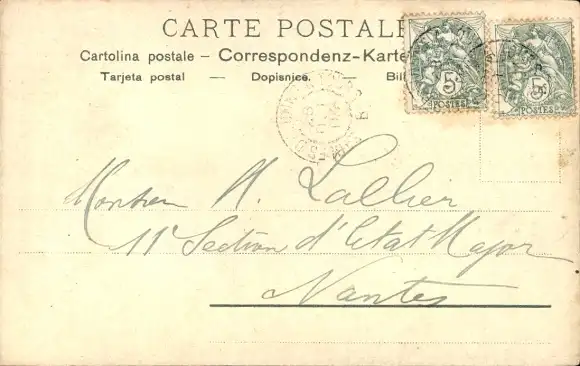 CARTE POSTALE
Cartolina postale – Correspondenz-Karte
Tarjeta postal — Dopisnice. — Bil
5
POSTES
5
POSTES
Monsieur H. Lallier
11e Section d'Etat Major
Nantes